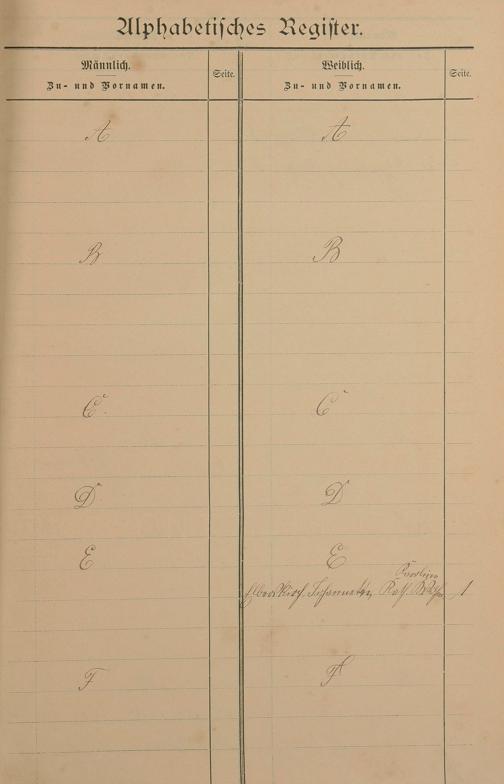 Alphabetisches Register.
Männlich.
Zu- und Vornamen.
Seite.
Weiblich.
Zu- und Vornamen.
Seite.
A
A
B
B
C
C
D
D
E
E
1
F
F